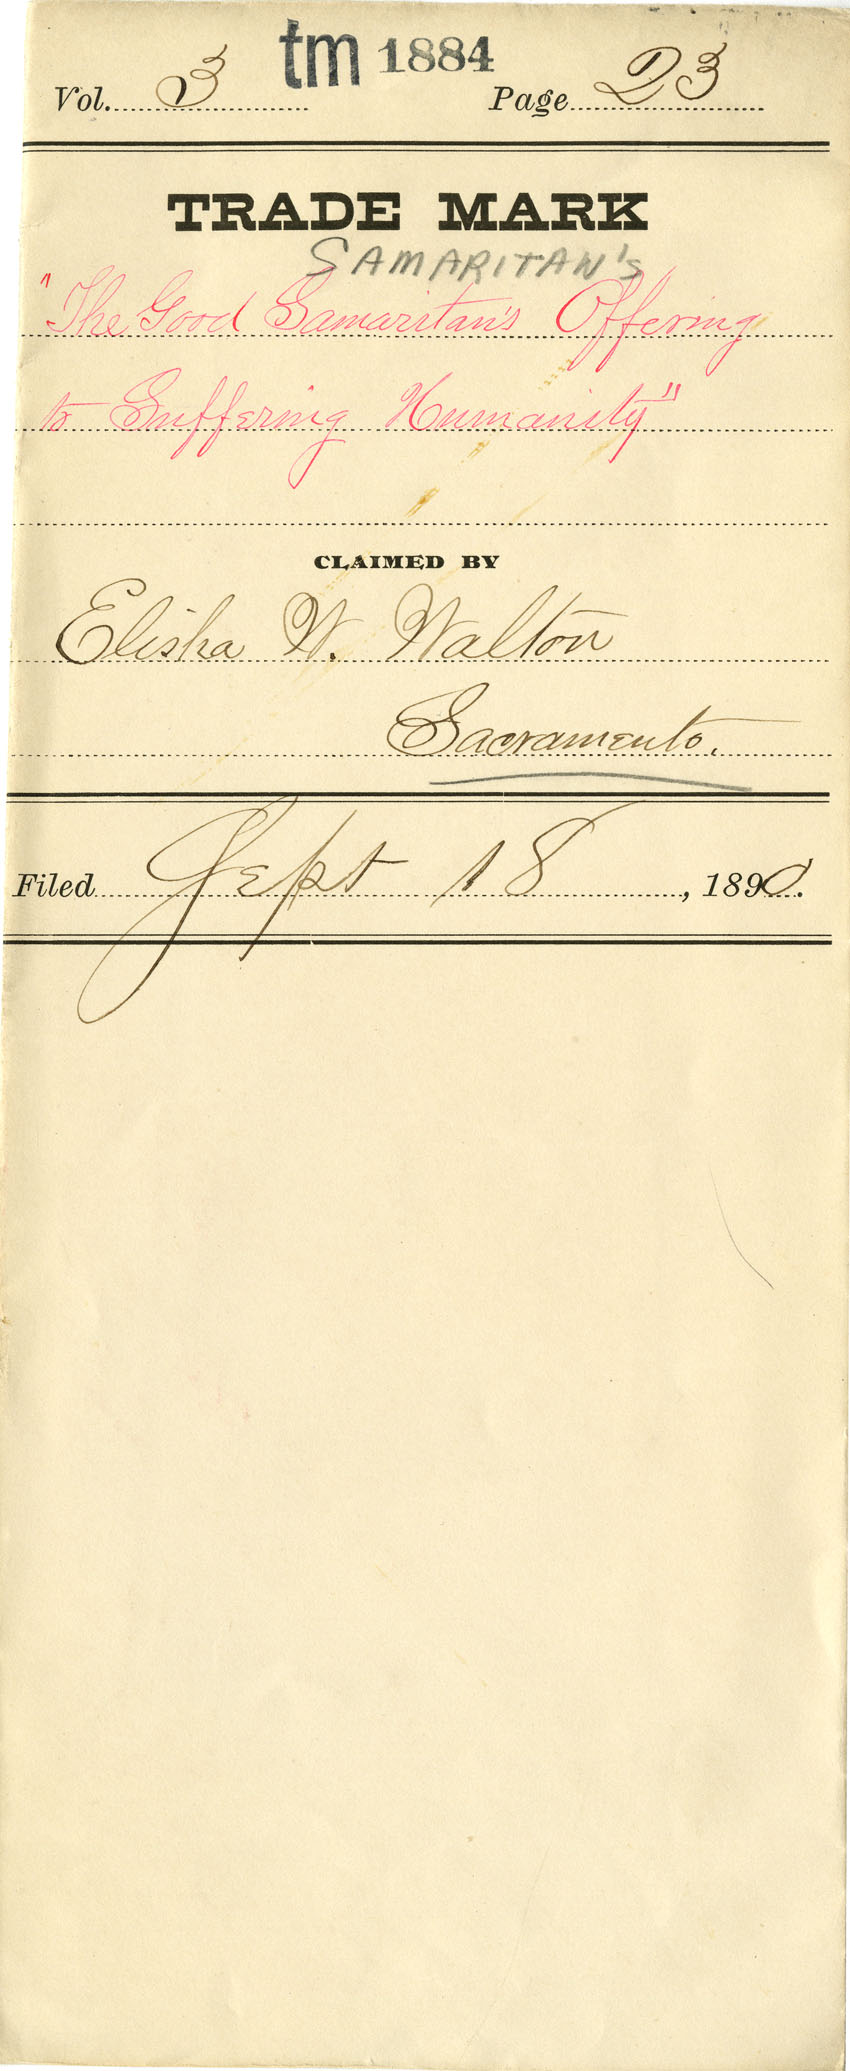 Vol. 3 tm 1884 Page 23
TRADE MARK
SAMARITAN'S
"The Good Samaritan's Offering
to Suffering Humanity"
CLAIMED BY
Elisha W. Walton
Sacramento.
Filed Sept 18, 1890.